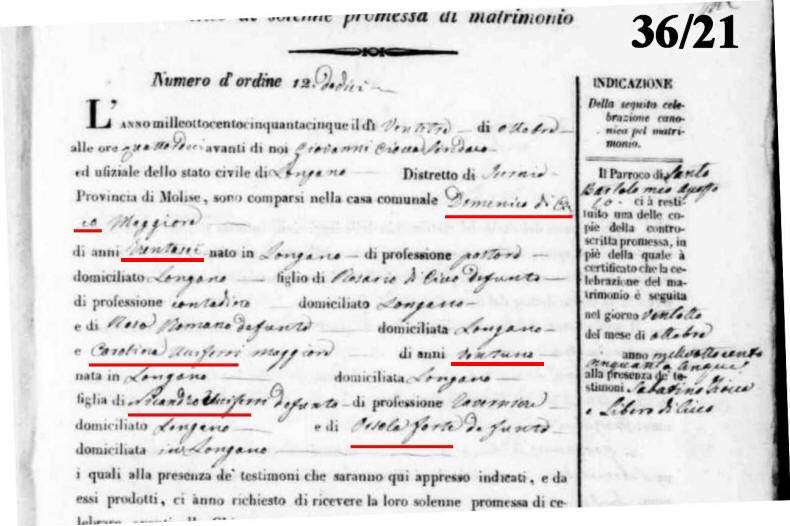 di solenne promessa di matrimonio
36/21
Numero d'ordine 12. Dodici
L'anno millecinquecento ottocentocinquantacinque il dì Ventotto di ottobre
alle ore quattordici avanti di noi Giovanni Cicca Sindaco
ed ufiziale dello stato civile di Longano Distretto di Isernia
Provincia di Molise, sono comparsi nella casa comunale Domenico di Ciu
co Maggiore
di anni trentasei nato in Longano di professione pastore
domiciliato Longano figlio di Rosario di Ciuco defunto
di professione contadino domiciliato Longano
e di Rosa Romano defunta domiciliata Longano
e Carolina Uniformi maggiore di anni ventuno
nata in Longano domiciliata Longano
figlia di Leandro Uniformi defunto di professione
domiciliato Longano e di Orsola forte defunta
domiciliata in Longano
i quali alla presenza de' testimoni che saranno qui appresso indicati, e da
essi prodotti, ci ànno richiesto di ricevere la loro solenne promessa di ce-
INDICAZIONE
Della seguita cele-
brazione cano-
nica pel matri-
monio.
Il Parroco di Santo
Bartolomeo Aposto
lo ci à resti
tuito una delle co-
pie della contro-
scritta promessa, in
piè della quale à
certificato che la ce-
lebrazione del ma-
trimonio è seguita
nel giorno Ventotto
del mese di ottobre
anno milleottocento
cinquanta cinque
alla presenza de' te-
stimoni Sabatino
e Libero di Ciuco